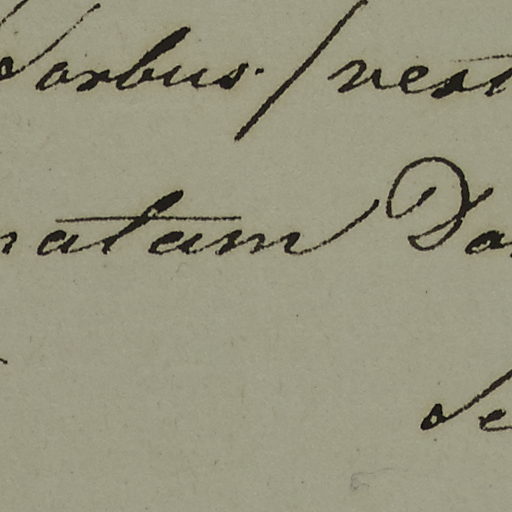 Sorbus. / vest
natam Da
Se